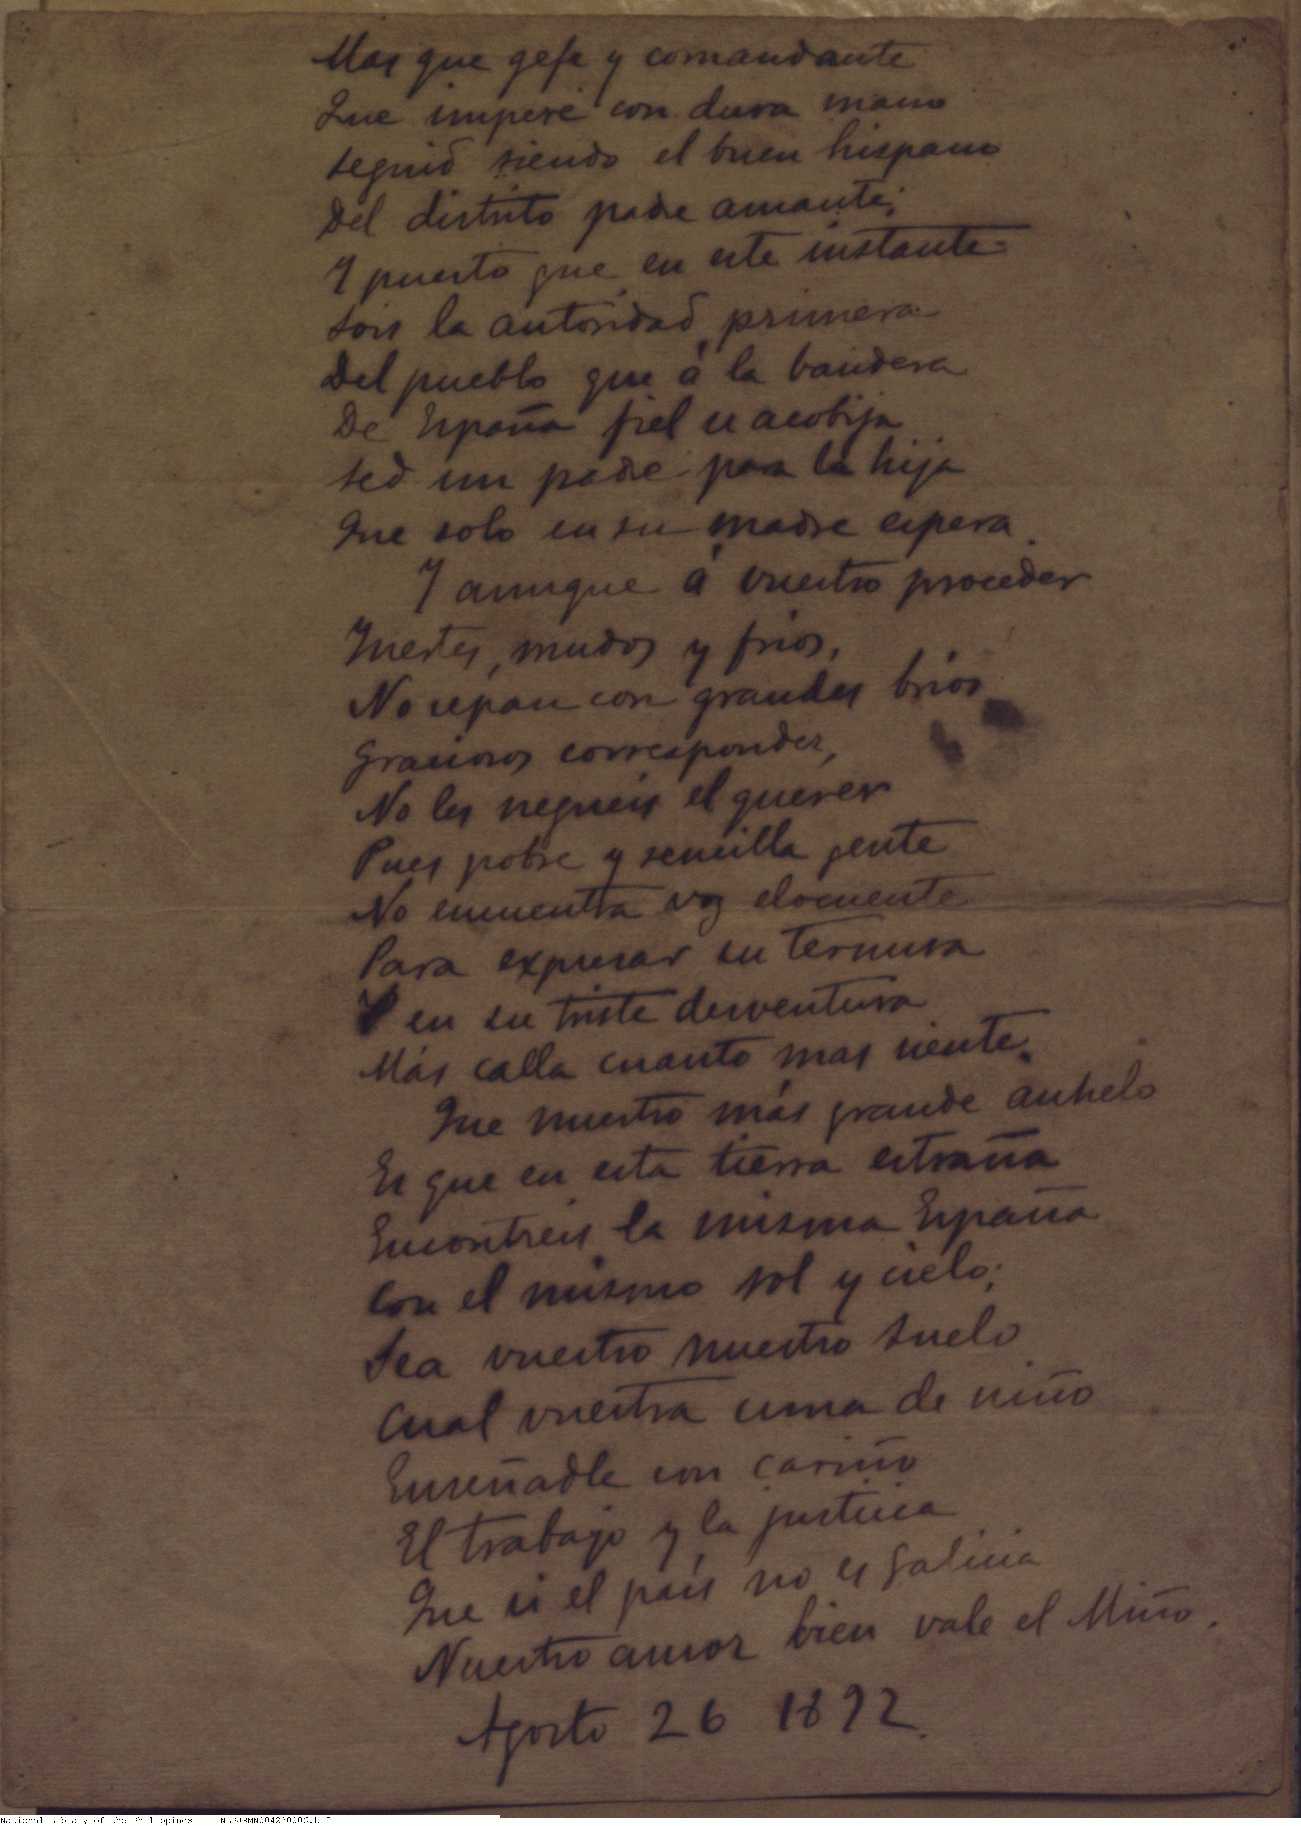 Mas que gefe y comandante
Que impere con dura mano
seguid siendo el buen hispano
Del distrito padre amante;
Y puesto que en este instante
Sois la autoridad primera
Del pueblo que á la bandera
De España fiel se acobija
Sed un padre para la hija
Que solo en su madre espera.
Y aunque á vuestro proceder
Inertes, mudos y frios,
No sepan con grandes brios
Graciosos corresponder,
No les negueis el querer
Pues pobre y sencilla gente
No encuentra voz elocuente
Para expresar su ternura
Y en su triste desventura
Más calla cuanto mas siente.
Que nuestro más grande anhelo
Es que en esta tierra estraña
Encontreis la misma España
Con el mismo sol y cielo;
Sea vuestro nuestro suelo
Cual vuestra cuna de niño
Enseñadle con cariño
El trabajo y la justicia
Que si el país no es Galicia
Nuestro amor bien vale el Miño.
Agosto 26 1892.
National Library of the Philippines